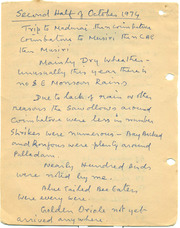 Second Half of October 1974
Trip to Madurai then Coimbatore
Coimbatore to Musiri, then CBE
then Musiri.
Mainly Dry Weather -
unusually this year there is
no S E Monsoon Rains
Due to lack of rain or other
reasons the Swallows around
Coimbatore were less in number
Shrikes were numerous - Bay Backed
and Roufous were plenty around
Palladam.
Nearly Hundred birds
were noted by me.
Blue Tailed Bee Eaters
were very were.
Golden Oriole not yet
arrived anywhere